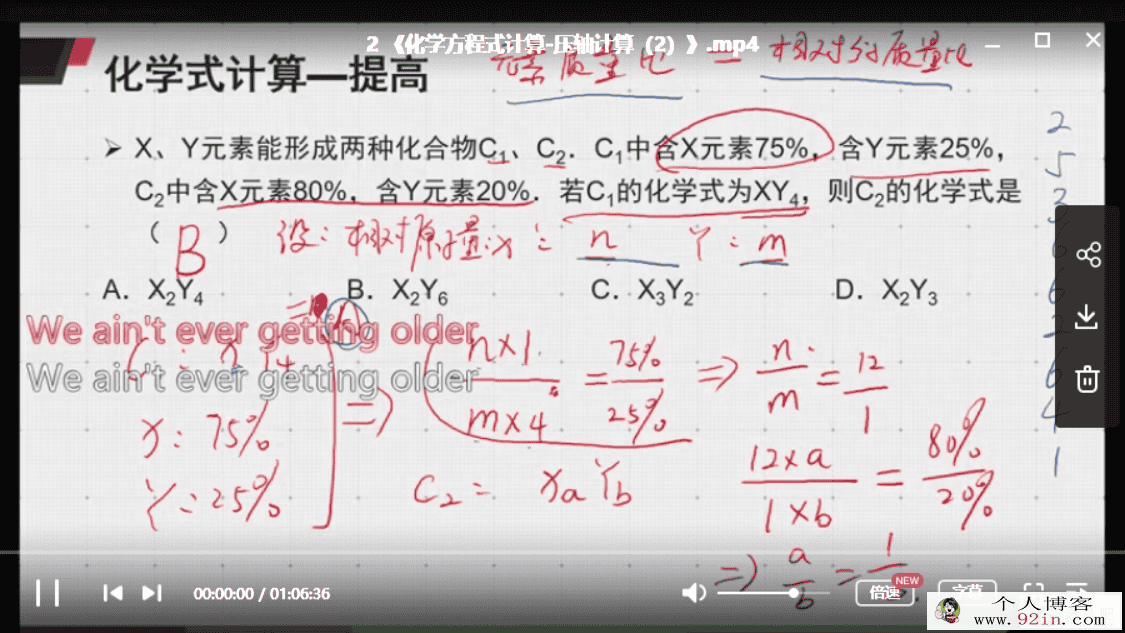 2 《化学方程式计算-压轴计算（2）》.mp4
化学式计算—提高
元素质量比 = 相对分质量比
➢ X、Y元素能形成两种化合物C₁、C₂．C₁中含X元素75%，含Y元素25%，
C₂中含X元素80%，含Y元素20%．若C₁的化学式为XY₄，则C₂的化学式是
（ B ） 设：相对原子量：X：n Y：m
A．X₂Y₄ B．X₂Y₆ C．X₃Y₂ D．X₂Y₃
We ain't ever getting older
We ain't ever getting older
X：75%
Y：25%
⇒ n×1 / m×4 = 75% / 25% ⇒ n / m = 12 / 1
C₂： XaYb
12×a / 1×b = 80% / 20%
⇒ a / b = 1 /
2
5
3
6
6
2
6
4
1
00:00:00 / 01:06:36
倍速
NEW
字幕
个人博客
www.92in.com